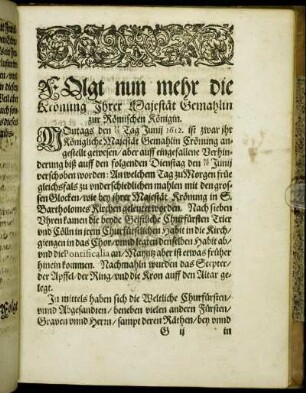 FOlgt nun mehr die
Krönung Ihrer Majestät Gemahlin
zur Römischen Königin.
MOntags den Tag Junij 1612. ist zwar ihr
Königliche Majestät Gemahlin Crönung an-
gestellt gewesen/ aber auß eingefallene Verhin-
derung biß auff den folgenden Dienstag den Junij
verschoben worden: An welchem Tag zu Morgen früe
gleichsfals zu underschiedlichen mahlen mit den gros-
sen Glocken/ wie bey ihrer Majestät Krönung in S.
Bartholomes Kirchen geleutet worden. Nach sieben
Uhren kamen die beyde Geistliche Churfürsten Trier
und Cölln in irem Churfürstlichen Habit in die Kirch/
giengen in das Chor/ vnnd legten denselben Habit ab/
vnd die Pontificalia an/ Mayntz aber ist etwas früher
hinein kommen. Nachmahln wurden das Scepter/
der Apffel/ der Ring/ vnd die Kron auff den Altar ge-
legt.
In mittels haben sich die Weltliche Churfürsten/
vnnd Abgesandten/ beneben vielen anderen Fürsten/
Graven vnnd Herrn/ sampt deren Räthen/ bey vnnd
G ij in